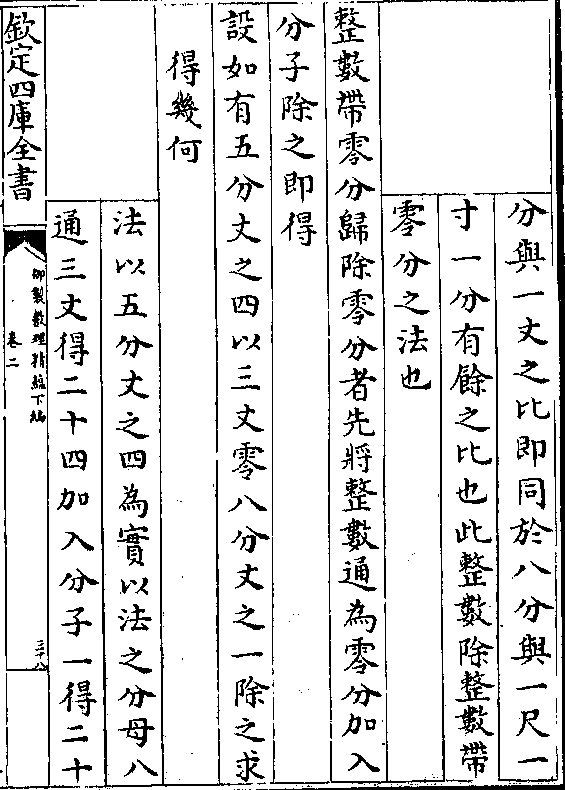 分與一丈之比即同於八分與一尺一
寸一分有餘之比也此整數除整數帶
零分之法也
整數帶零分歸除零分者先將整數通為零分加入
分子除之即得
設如有五分丈之四以三丈零八分丈之一除之求
得幾何
法以五分丈之四為實以法之分母八
通三丈得二十四加入分子一得二十
欽定四庫全書
御製數理精蘊下編
卷二
三十八